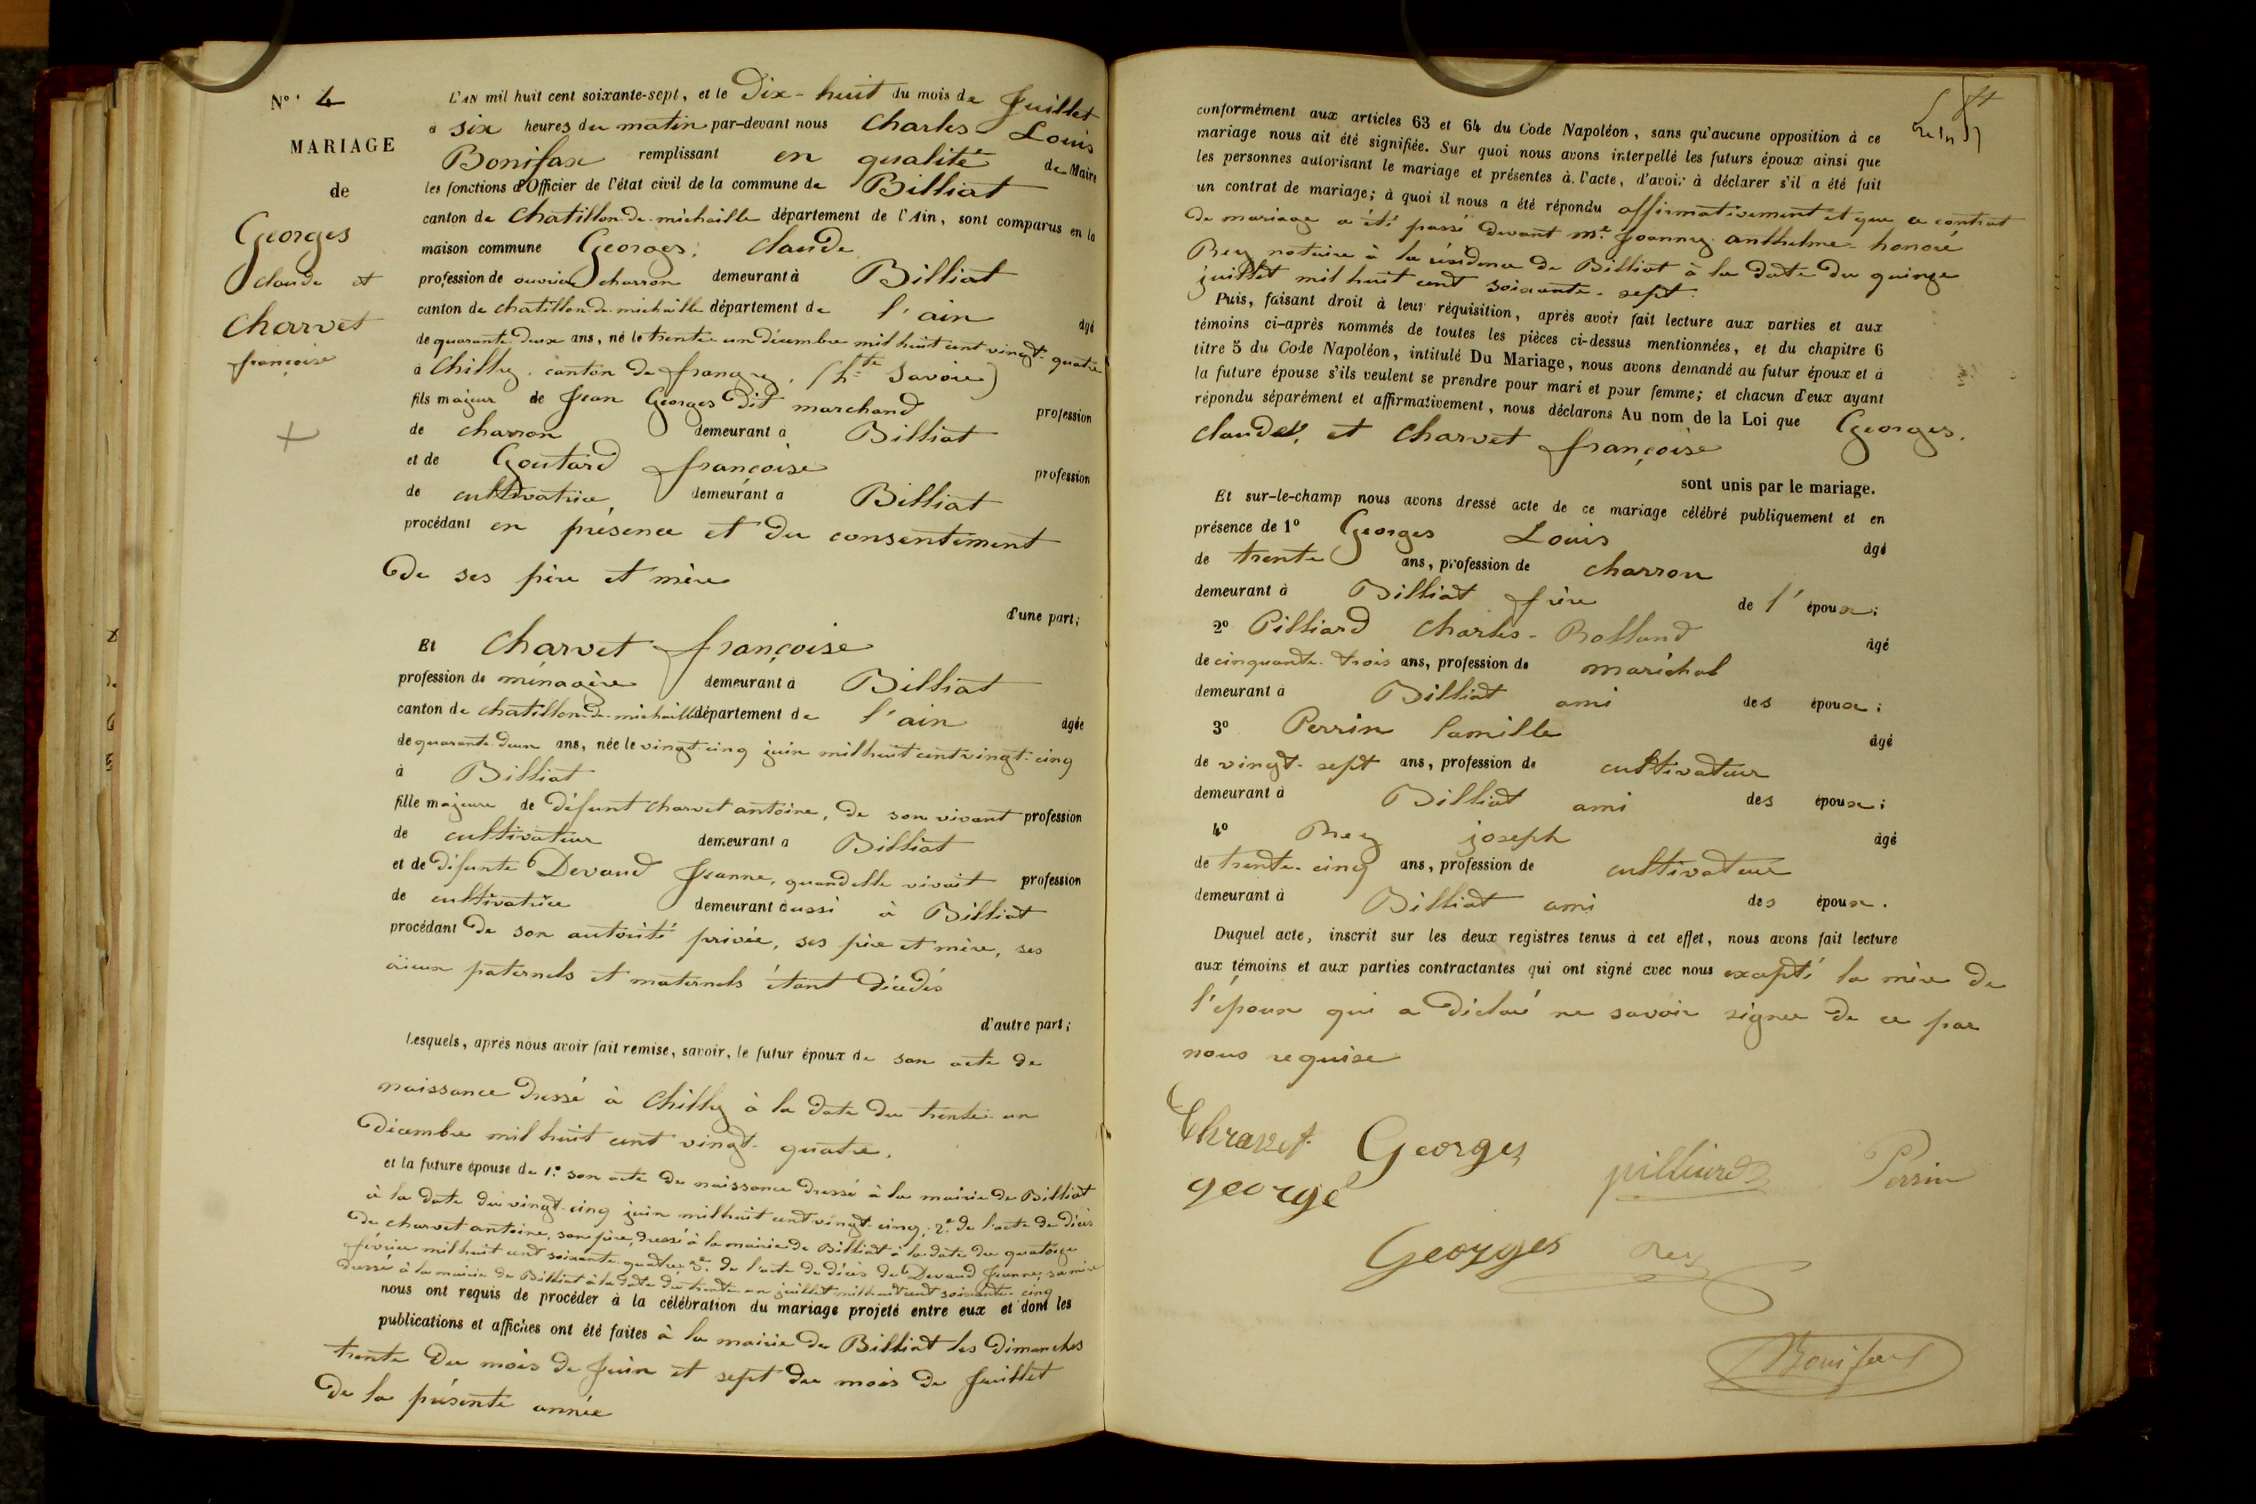 N° 4
MARIAGE
de
Georges
claude et
Charvet
françoise
L'AN mil huit cent soixante-sept, et le Dix-huit du mois de Juillet
à six heures du matin par-devant nous Charles Louis
Bonifax remplissant en qualité de Maire
les fonctions d'Officier de l'état civil de la commune de Billiat
canton de Chatillon-de-michaille département de l'Ain, sont comparus en la
maison commune Georges, Claude
profession de ouvrier charron demeurant à Billiat
canton de chatillon-de-michaille département de l'ain âgé
de quarante deux ans, né le trente un décembre mil huit cent vingt-quatre
à Chilly, canton de frangy, (hte Savoie)
fils majeur de Jean Georges dit marchand profession
de charron demeurant à Billiat
et de Goutard françoise profession
de cultivatrice demeurant a Billiat
procédant en présence et du consentement
De ses père et mère
d'une part;
Et Charvet françoise
profession de ménagère demeurant à Billiat
canton de chatillon-de-michaille département de l'ain âgée
de quarante-deux ans, née le vingt-cinq juin mil huit cent vingt-cinq
à Billiat
fille majeure de défunt charvet antoine, de son vivant profession
de cultivateur demeurant a Billiat
et de défunte Devaud Jeanne, quand elle vivait profession
de cultivatrice demeurant aussi à Billiat
procédant de son autorité privée, ses père et mère, ses
aïeux paternels et maternels étant décédés
d'autre part;
Lesquels, après nous avoir fait remise, savoir, le futur époux de son acte de
naissance dressé à Chilly à la date du trente-un
Décembre mil huit cent vingt-quatre.
et la future épouse de 1.° son acte de naissance dressé à la mairie de Billiat
à la date du vingt-cinq juin mil huit cent vingt-cinq; 2.° de l'acte de décès
de charvet antoine, son père, dressé à la mairie de Billiat à la date du quatorze
février mil huit cent soixante-quatre 3.° de l'acte de décès de Devaud Jeanne, sa mère
dressé à la mairie de Billiat à la date du trente-un juillet mil huit cent soixante-cinq
nous ont requis de procéder à la célébration du mariage projeté entre eux et dont les
publications et affiches ont été faites à la mairie de Billiat les dimanches
trente du mois de Juin et sept du mois de Juillet
De la présente année
conformément aux articles 63 et 64 du Code Napoléon, sans qu'aucune opposition à ce
mariage nous ait été signifiée. Sur quoi nous avons interpellé les futurs époux ainsi que
les personnes autorisant le mariage et présentes à l'acte, d'avoir à déclarer s'il a été fait
un contrat de mariage; à quoi il nous a été répondu affirmativement et que ce contrat
de mariage a été passé devant me. Joanny anthelme-honoré
Rey notaire à la résidence de Billiat à la date du quinze
juillet mil huit cent soixante-sept.
Puis, faisant droit à leur réquisition, après avoir fait lecture aux parties et aux
témoins ci-après nommés de toutes les pièces ci-dessus mentionnées, et du chapitre 6
titre 5 du Code Napoléon, intitulé Du Mariage, nous avons demandé au futur époux et à
la future épouse s'ils veulent se prendre pour mari et pour femme; et chacun d'eux ayant
répondu séparément et affirmativement, nous déclarons Au nom de la Loi que Georges,
claude, et Charvet françoise
sont unis par le mariage.
Et sur-le-champ nous avons dressé acte de ce mariage célébré publiquement et en
présence de 1° Georges Louis âgé
de trente ans, profession de charron
demeurant à Billiat frère de l'époux;
2° Pilliard Charles-Rolland âgé
de cinquante-trois ans, profession de maréchal
demeurant à Billiat ami des époux;
3° Perrin Camille âgé
de vingt-sept ans, profession de cultivateur
demeurant à Billiat ami des époux;
4° Rey joseph âgé
de trente-cinq ans, profession de cultivateur
demeurant à Billiat ami des époux.
Duquel acte, inscrit sur les deux registres tenus à cet effet, nous avons fait lecture
aux témoins et aux parties contractantes qui ont signé avec nous excepté la mère de
l'époux qui a déclaré ne savoir signer de ce par
nous requise
Georges pilliard Perrin
george
Georges Rey
Bonifax